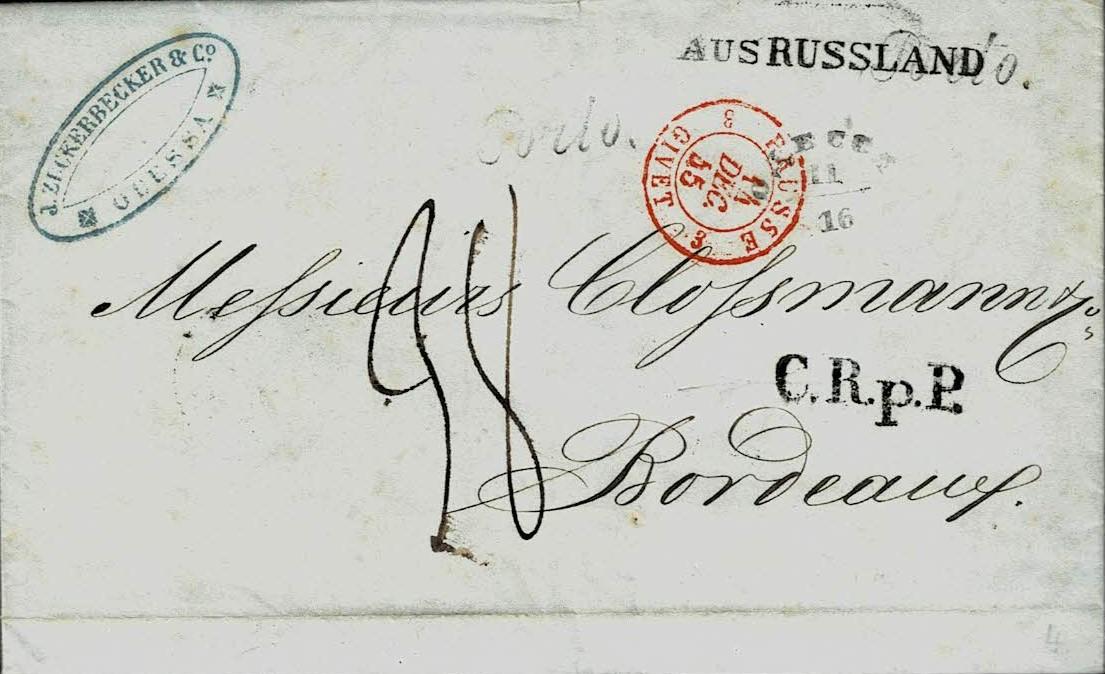 J. ZUCKERBECKER & Cº
ODESSA
AUS RUSSLAND
Porto.
Porto.
PRUSSE 3 GIVET 3
14
DEC.
55
11
16
Messieurs Clossmann & Cº
C.R.p.P.
Bordeaux.
4